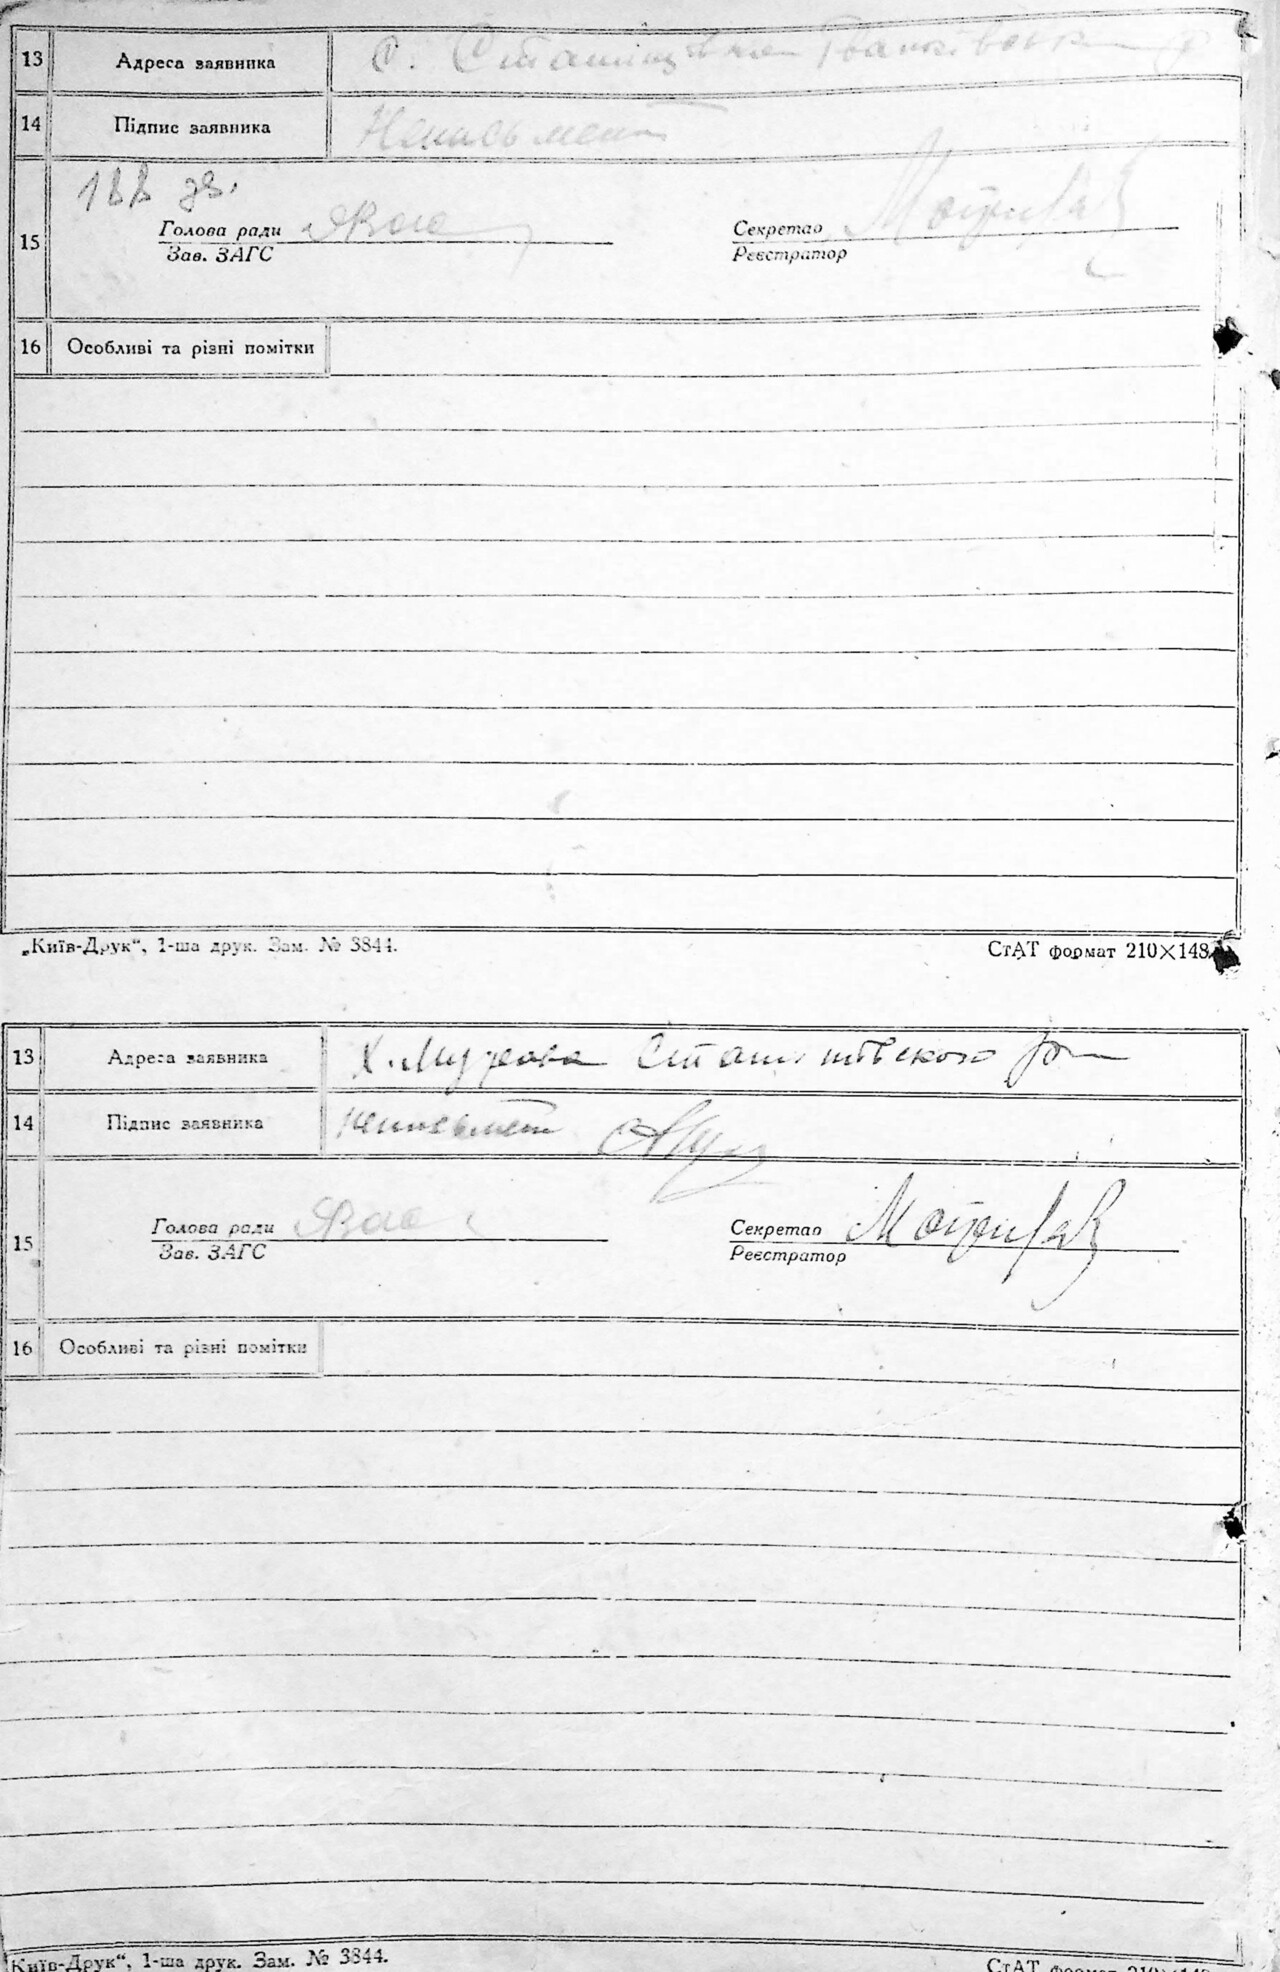 13 Адреса заявника с.
14 Підпис заявника Неписьмен
188 зв.
15 Голова ради Секретар
Зав. ЗАГС Реєстратор
16 Особливі та різні помітки
„Київ-Друк“, 1-ша друк. Зам. № 3844. СтАТ формат 210×148
13 Адреса заявника х.
14 Підпис заявника неписьмен
15 Голова ради Секретар
Зав. ЗАГС Реєстратор
16 Особливі та різні помітки
Київ-Друк“, 1-ша друк. Зам. № 3844. СтАТ формат 210×148